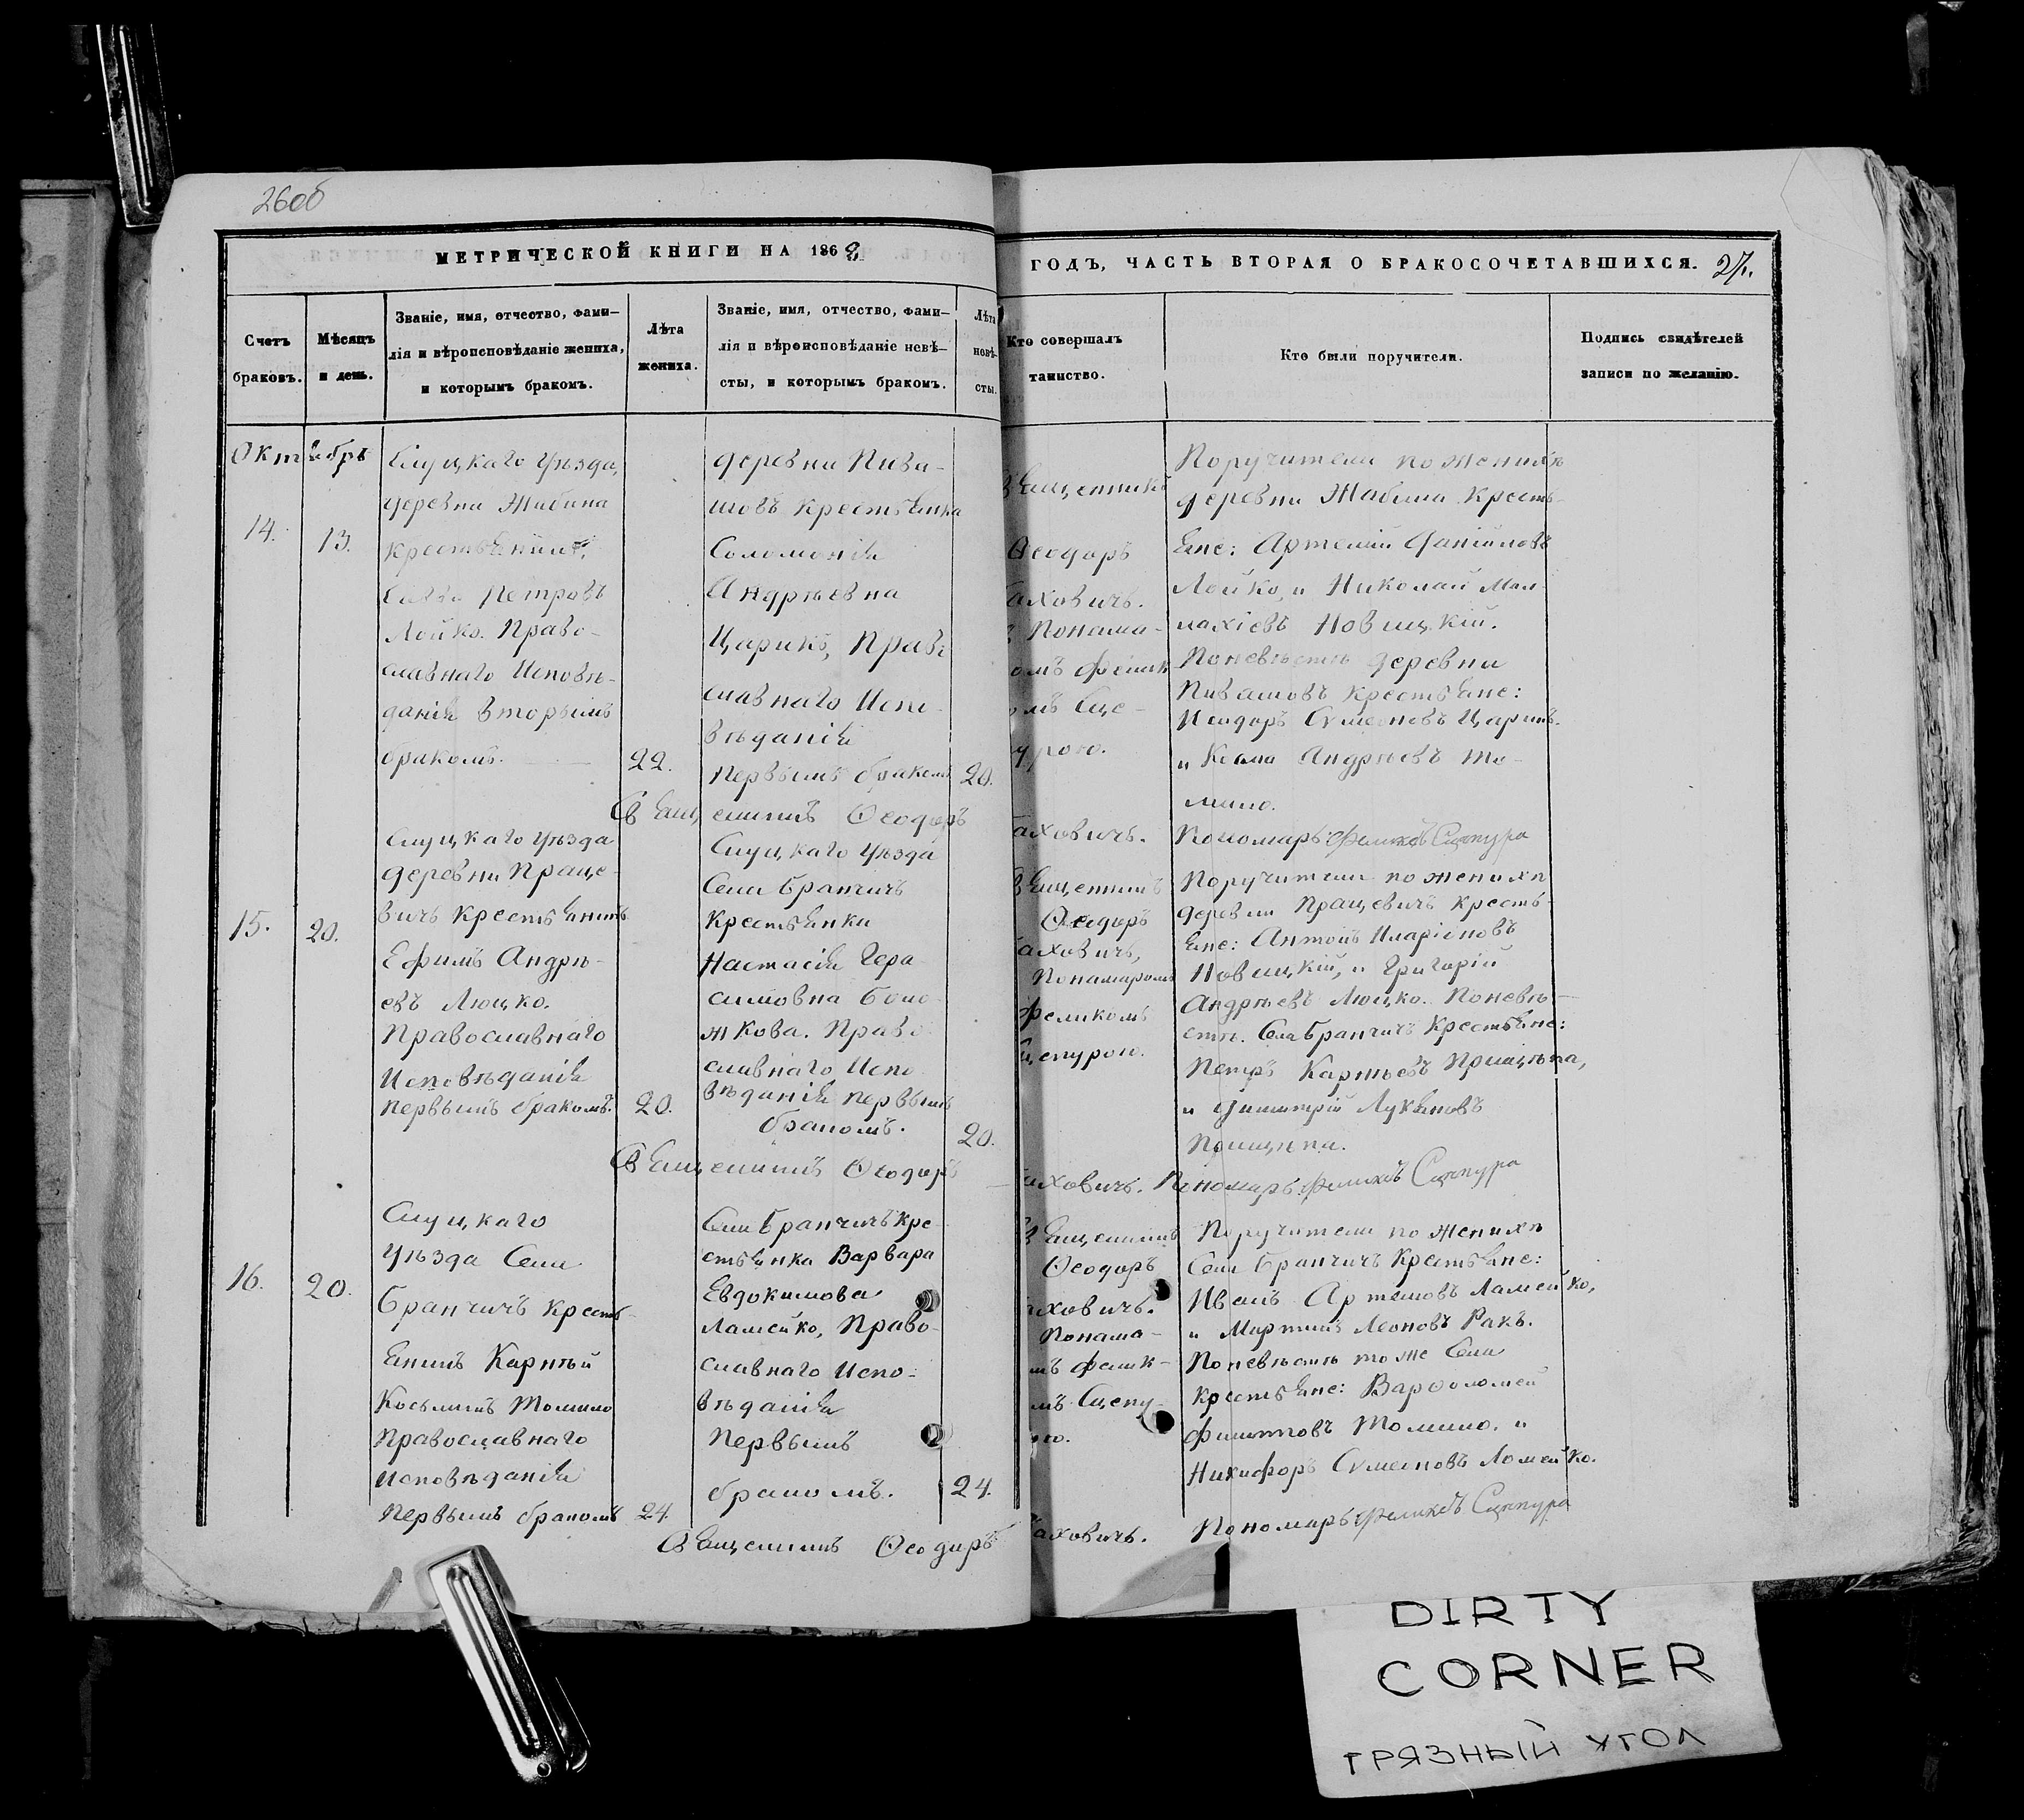 26об
МЕТРИЧЕСКОЙ КНИГИ НА 1868
ГОДЪ, ЧАСТЬ ВТОРАЯ О БРАКОСОЧЕТАВШИХСЯ. 27.
Счетъ
браковъ.
Мѣсяцъ
и день.
Званіе, имя, отчество, фами-
лія и вѣроисповѣданіе жениха,
и которымъ бракомъ.
Лѣта
жениха.
Званіе, имя, отчество, фами-
лія и вѣроисповѣданіе невѣ-
сты, и которымъ бракомъ.
Лѣта
невѣ-
сты.
Кто совершалъ
таинство.
Кто были поручители.
Подпись свидѣтелей
записи по желанію.
Октябрь
14.
13.
Слуцкаго Уѣзда,
деревни Жабина
крестьянинъ,
Петровъ
Лойко. Право-
славнаго Исповѣ-
данія вторымъ
бракомъ.
22.
деревни Пива-
шовъ крестьянка
Соломонія
Андрѣевна
Царикъ, Право
славнаго Испо-
вѣданія
первымъ бракомъ
20.
вященникъ
Ѳеодоръ
аховичъ.
Понама-
омъ Фелик
омъ Сце-
урою.
Поручители по женихѣ
деревни Жабина кресть-
яне: Артемій Даніиловъ
Лойко, и Николай Мал-
пахіевъ Новицкій.
Поневѣстѣ деревни
Пивашовъ крестьяне:
Исидоръ Сумеоновъ Царикъ.
и Козма Андрѣевъ То-
мило.
Священникъ Ѳеодоръ
аховичъ. Пономарь Феликсъ Сцепура
15.
20.
Слуцкаго Уѣзда
деревни Праце-
вичъ крестьянинъ
Ефимъ Андрѣ-
евъ Люцко.
Православнаго
Исповѣданія
первымъ бракомъ.
20.
Слуцкаго Уѣзда
Села Бранчичъ
крестьянка
Настасія Гера-
симовна Боло-
жкова. Право
славнаго Испо-
вѣданія первымъ
бракомъ.
20.
вященникъ
Ѳеодоръ
аховичъ,
Понамаромъ
Феликомъ
Сцепурою.
Поручители по женихѣ
деревни Працевичъ кресть-
яне: Антонъ Иларіоновъ
Новицкій, и Григорій
Андрѣевъ Люцко. Поневѣ-
стѣ. Села Бранчичъ крестьяне:
Петръ Карпѣевъ Прищепа,
и Димитрій Лукьяновъ
Священникъ Ѳеодоръ
аховичъ. Пономарь Феликсъ Сцепура
16.
20.
Слуцкаго
Уѣзда Села
Бранчичъ кресть-
янинъ Карпѣй
Косьминъ Томило
Православнаго
Исповѣданія
Первымъ бракомъ
24
Села Бранчичъ кре-
стьянка Варвара
Евдокимова
Ламейко, Право-
славнаго Испо-
вѣданія
Первымъ
бракомъ.
24.
вященникъ
Ѳеодоръ
аховичъ.
Понама-
мъ Фелик-
мъ Сцепу-
ою.
Поручители по женихѣ
Села Бранчичъ крестьяне:
Иванъ Артемовъ Ламейко,
и Мартинъ Леоновъ Ракъ.
Поневѣстѣ тоже Села
крестьяне: Варфоломей
Филиповъ Томило. и
Никифоръ Сумеоновъ Ломейко.
Священникъ Ѳеодоръ
аховичъ. Пономарь Феликсъ Сцепура
DIRTY
CORNER
ГРЯЗНЫЙ УГОЛ